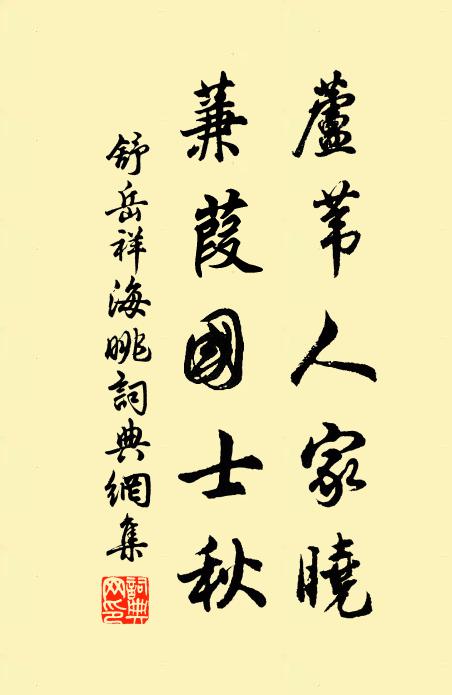 蘆苇人家曉
蒹葭國士秋
舒岳祥海眺詞典網集
詞典网印